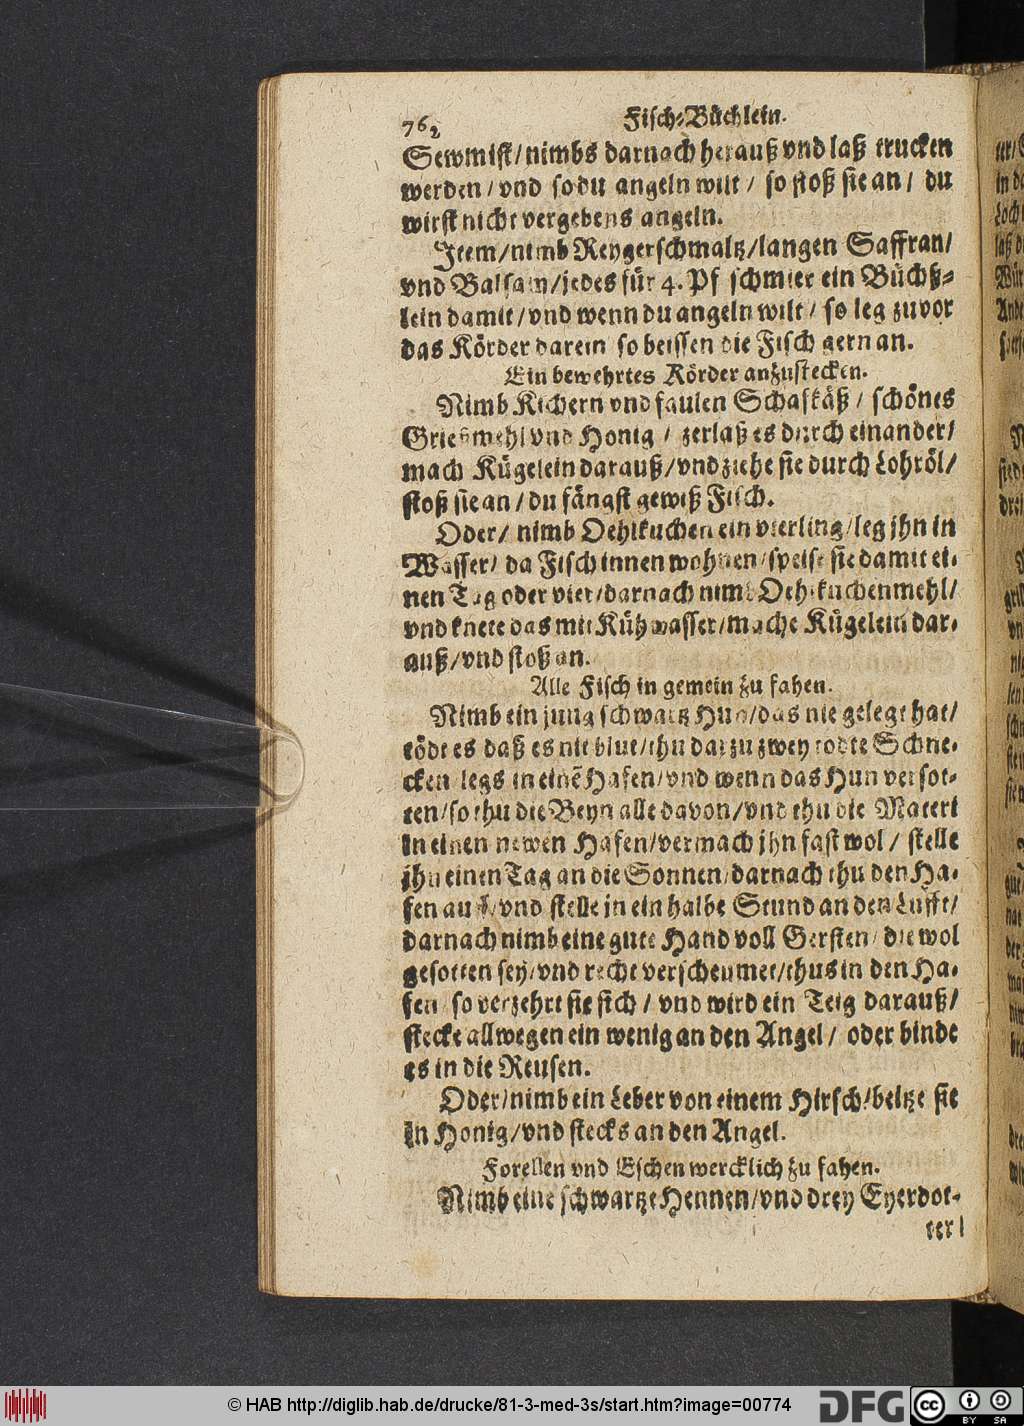 762 Fisch-Büchlein.
Sewmist/nimbs darnach herauß vnd laß trucken
werden/vnd so du angeln wilt/ so stoß sie an/ du
wirst nicht vergebens angeln.
Item/nimb Reygerschmaltz/langen Saffran/
vnd Balsam/jedes für 4. Pf schmier ein Büchß-
lein damit/vnd wenn du angeln wilt/ so leg zuvor
das Körder darein so beissen die Fisch gern an.
Ein bewehrtes Körder anzustecken.
Nimb Kichern vnd faulen Schafkäß/ schönes
Grießmehl vnd Honig/ zerlaß es durch einander/
mach Kügelein darauß/vnd ziehe sie durch Lohröl/
stoß sie an/du fängst gewiß Fisch.
Oder/ nimb Oehlkuchen ein vierling/leg jhn in
Wasser/ da Fisch innen wohnen/speise sie damit ei-
nen Tag oder vier/darnach nimb Oehlkuchenmehl/
vnd knete das mit Kühwasser/mache Kügelein dar-
auß/vnd stoß an.
Alle Fisch in gemein zu fahen.
Nimb ein jung schwartz Hun/das nie gelegt hat/
tödt es daß es nit blut/thu darzu zwey todte Schne-
cken/legs in einē Hafen/vnd wenn das Hun versot-
ten/so thu die Beyn alle davon/vnd thu die Materi
in einen newen Hafen/vermach jhn fast wol/ stelle
jhn einen Tag an die Sonnen/darnach thu den Ha-
fen auff/vnd stelle jn ein halbe Stund an den Lufft/
darnach nimb eine gute Hand voll Gersten/die wol
gesotten sey/vnd recht verscheumet/thus in den Ha-
fen/so verzehrt sie sich/ vnd wird ein Teig darauß/
stecke allwegen ein wenig an den Angel/ oder binde
es in die Reusen.
Oder/nimb ein Leber von einem Hirsch/beitze sie
in Honig/vnd stecks an den Angel.
Forellen vnd Eschen wercklich zu fahen.
Nimb eine schwartze Hennen/vnd drey Eyerdot-
ter/
© HAB http://diglib.hab.de/drucke/81-3-med-3s/start.htm?image=00774
DFG
cc BY SA